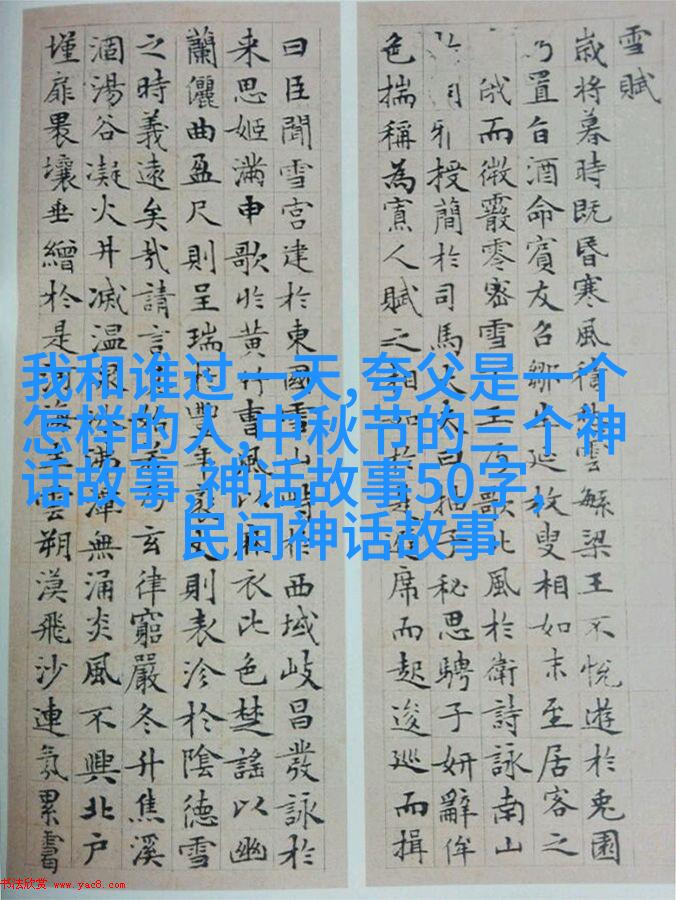 雪賦
歲將暮時既昏寒風積雲繁梁王不悅遊於兎園
乃置旨酒命賓友召鄒生延枚叟相如末至居客之
俄而微霰零密雪王歌北風於衛詩詠南山
雅授簡於司馬大夫曰抽子秘思騁子妍辭侔
色揣稱為寡人賦之相如於是避席而起逡巡而揖
曰臣聞雪宮建於東國雪山峙於西域岐昌發詠於
来思姬滿申歌於黃竹曹風以麻衣比色楚謠以幽
蘭儷曲盈尺則呈瑞於豐年袤丈則表沴於陰德雪
之時義遠矣哉請言玄律窮嚴冬升焦溪
涸湯谷凝火井滅温沸潭無涌炎風不興北户
墐扉裸壤垂繒於是河海生雲朔漠飛沙連氛累靄
我和谁过一天,夸父是一个
怎样的人,中秋节的三个神
话故事,神话故事50字,
民间神话故事
书法欣赏 www.yac8.com